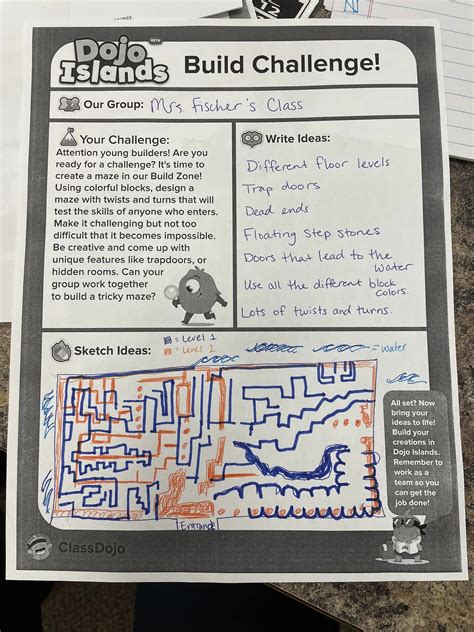 Dojo
Islands
BETA
Build Challenge!
Our Group: Mrs. Fischer's Class
Your Challenge:
Attention young builders! Are you
ready for a challenge? It's time to
create a maze in our Build Zone!
Using colorful blocks, design a
maze with twists and turns that will
test the skills of anyone who enters.
Make it challenging but not too
difficult that it becomes impossible.
Be creative and come up with
unique features like trapdoors, or
hidden rooms. Can your
group work together
to build a tricky maze?
Write Ideas:
Different floor levels
Trap doors
Dead ends
Floating Step stones
Doors that lead to the
water
Use all the different block
colors.
Lots of twists and turns.
Sketch Ideas:
= Level 1
= Level 2
= Water
Entrance
All set? Now
bring your
ideas to life!
Build your
creations in
Dojo Islands.
Remember to
work as a
team so you
can get the
job done!
ClassDojo